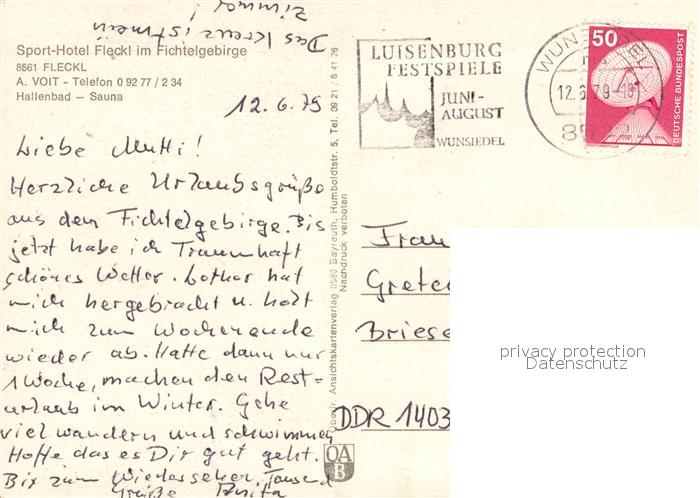 Das Kreuz ist mein
Zimmer!
Sport-Hotel Fleckl im Fichtelgebirge
8561 FLECKL
A. VOIT - Telefon 0 92 77 / 2 34
Hallenbad — Sauna
12.6.79
Liebe Mutti!
Herzliche Urlaubsgrüße
aus dem Fichtelgebirge. Bis
jetzt habe ich Traumhaft
schönes Wetter. Lothar hat
mich hergebracht u. holt
mich zum Wochenende
wieder ab. Hatte dann nur
1 Woche, machen den Rest-
urlaub im Winter. Gehe
viel wandern und schwimmen
Hoffe das es Dir gut geht.
Bix zum Wiedersehen. Tausend
Grüße Anita
Ansichtskartenverlag 8580 Bayreuth, Humboldtstr. 5, Tel. 09 21 / 6 41 26
Nachdruck verboten
OAB
LUISENBURG
FESTSPIELE
JUNI-
AUGUST
WUNSIEDEL
WUNSIEDEL
12.6.79-18
50
DEUTSCHE BUNDESPOST
Frau
Grete
Briese
DDR 1403
privacy protection
Datenschutz